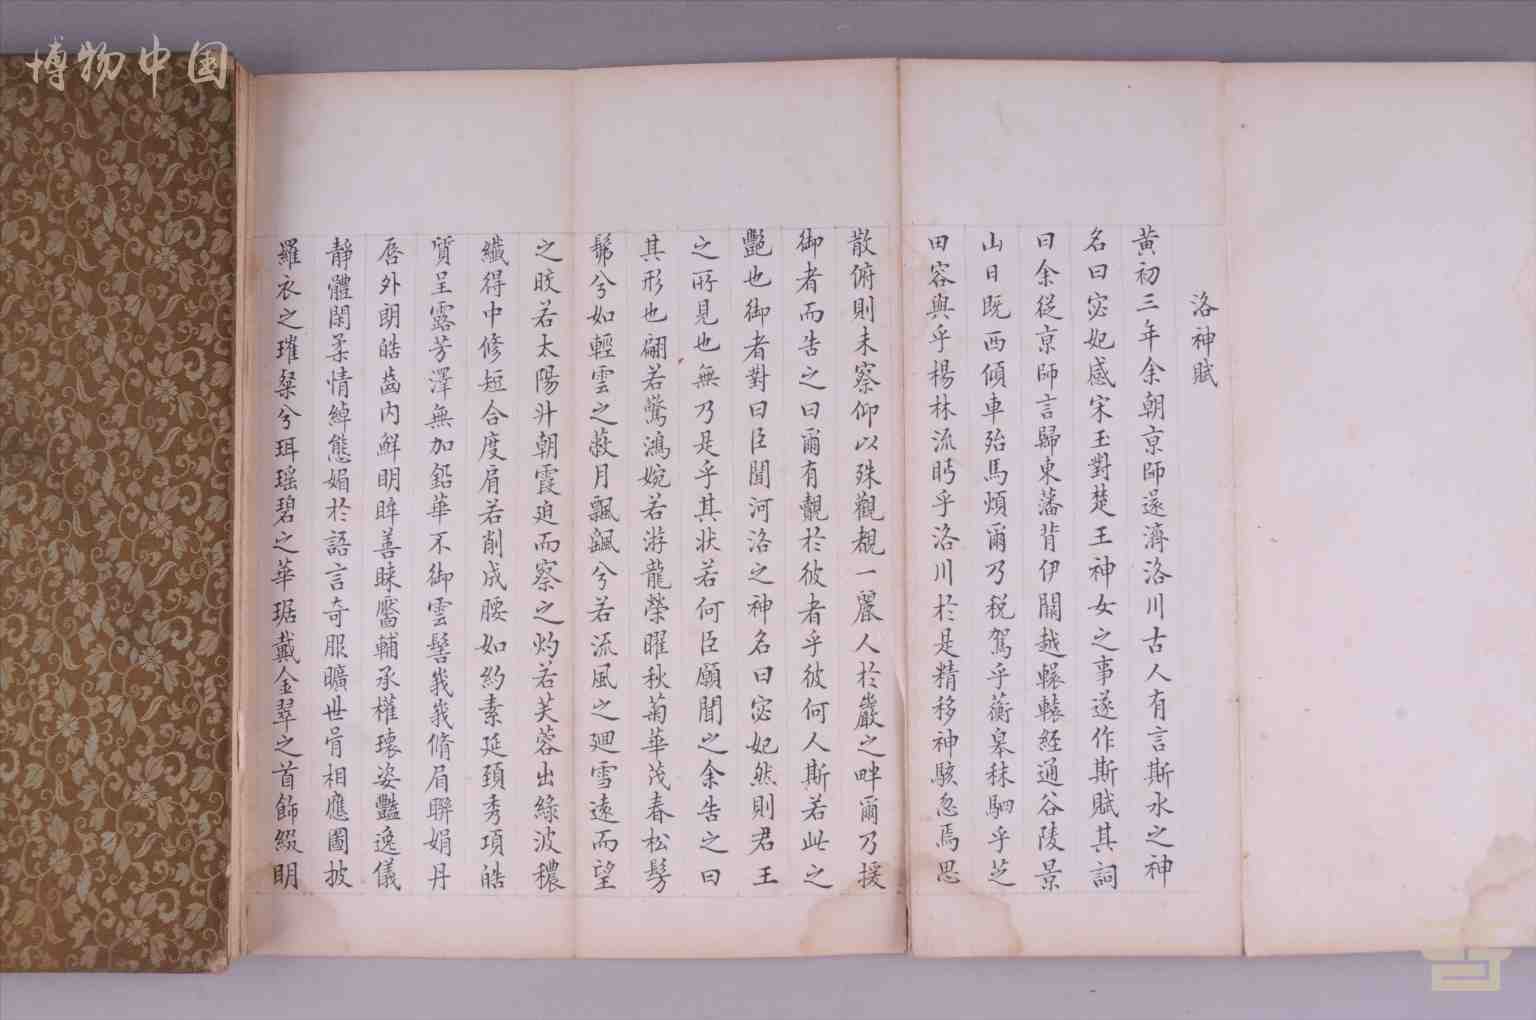 博物中国
洛神賦
黃初三年余朝京師遂濟洛川古人有言斯水之神
名曰宓妃感宋玉對楚王神女之事遂作斯賦其詞
曰余從京師言歸東藩背伊闕越轘轅經通谷陵景
山日既西傾車殆馬煩爾乃稅駕乎蘅皋秣駟乎芝
田容與乎楊林流眄乎洛川於是精移神駭忽焉思
散俯則未察仰以殊觀覩一麗人於巖之畔爾乃援
御者而告之曰爾有覿於彼者乎彼何人斯若此之
艷也御者對曰臣聞河洛之神名曰宓妃然則君王
之所見也無乃是乎其狀若何臣願聞之余告之曰
其形也翩若驚鴻婉若游龍榮曜秋菊華茂春松髣
髴兮如輕雲之蔽月飄颻兮若流風之廻雪遠而望
之皎若太陽升朝霞迫而察之灼若芙蓉出綠波穠
纖得中修短合度肩若削成腰如約素延頸秀項皓
質呈露芳澤無加鉛華不御雲髻峩峩脩眉聯娟丹
唇外朗皓齒內鮮明眸善睞靨輔承權瓌姿豔逸儀
靜體閑柔情綽態媚於語言奇服曠世骨相應圖披
羅衣之璀粲兮珥瑤碧之華琚戴金翠之首飾綴明